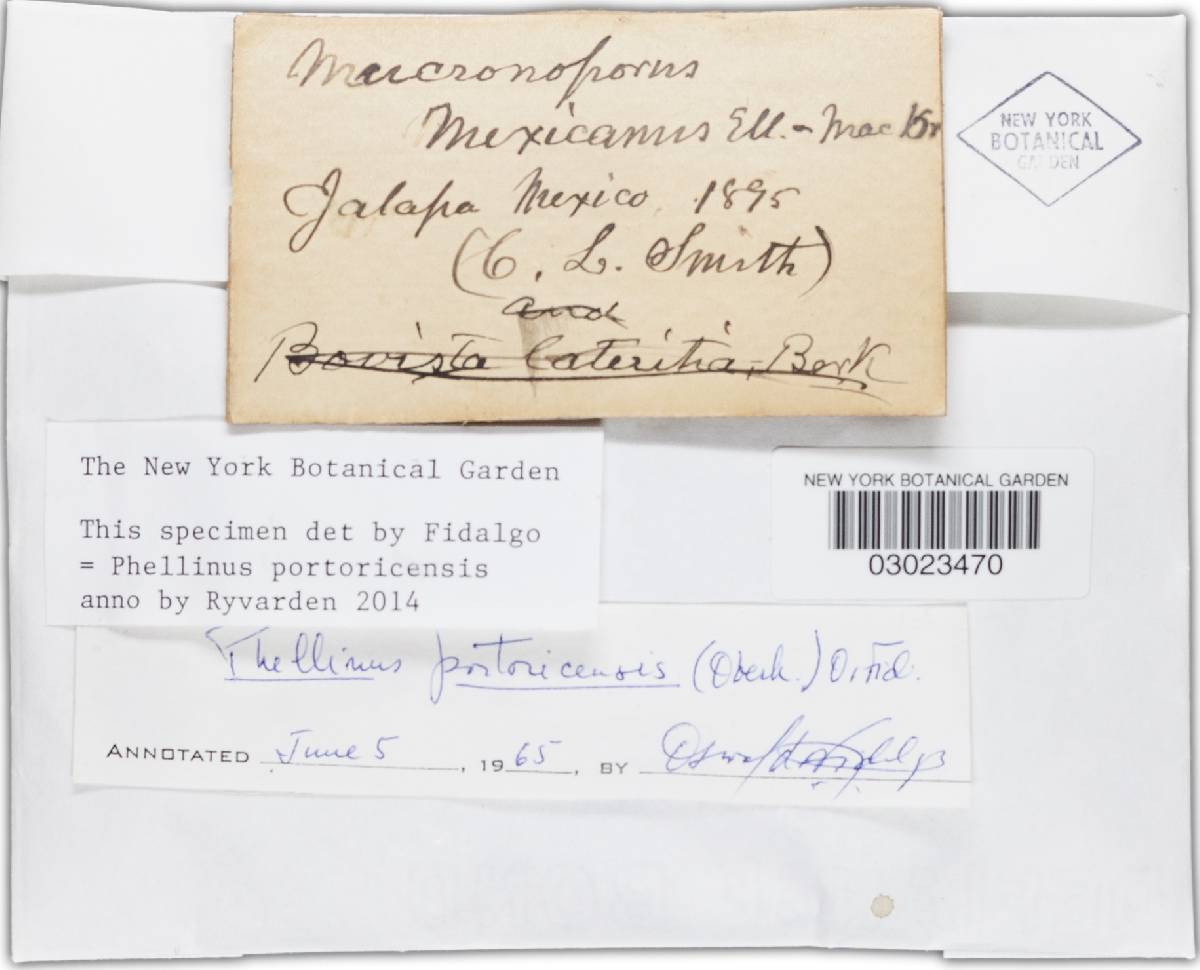 Mucronoporus
Mexicanus Ell. - Mac
Jalapa Mexico. 1895
(C. L. Smith)
and
Bovista lateritia, Berk
NEW YORK
BOTANICAL
GARDEN
The New York Botanical Garden
This specimen det by Fidalgo
= Phellinus portoricensis
anno by Ryvarden 2014
NEW YORK BOTANICAL GARDEN
03023470
Phellinus portoricensis (Overh.) O. Fid.
ANNOTATED June 5, 1965, BY Oswaldo Fidalgo